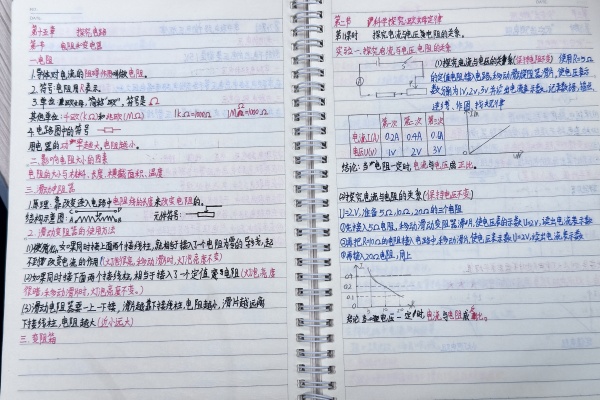 第十五章 探究电路
第一节 电阻和变阻器
一.电阻
1.导体对电流的阻碍作用叫做电阻。
2.符号:电阻用R表示。
3.单位:欧姆,简称"欧",符号是Ω
其他单位:千欧(kΩ)和兆欧(MΩ) 1kΩ=1000Ω 1MΩ=1000
4.电路图中的符号
用电器的功率越大,电阻越小。
二.影响电阻大小的因素
电阻的大小与材料、长度、横截面积、温度
三.滑动变阻器
1.原理:靠改变连入电路中电阻线的长度来改变电阻的。
结构示意图: 元件符号:
2.滑动变阻器的使用方法
(1)使用时,如果同时接上面两个接线柱,就相当于接入了一个电阻为零的导线,起
不到改变电流的作用(灯泡很亮,来移动滑片时,灯泡亮度不变)
(2)如果同时接下面两个接线柱,相当于接入了定值电阻(灯泡亮度
很暗,来移动滑片时,灯泡亮度不变。)
(3)滑动电阻器要一上一下接,滑片越靠下接线柱,电阻越小,滑片越远离
下接线柱,电阻越大(近小远大)
三.变阻箱
第二节 科学探究:欧姆定律
第1课时 探究电流与电压、电阻的关系
实验一.探究电流与电压、电阻的关系
(1)探究电流与电压的关系(保持电阻不变) 使用R=5Ω
的定值电阻接入电路,移动滑动变阻器滑片,使电压表示
数分别为1V,2V,3V,并读出电流表示数,记录数据,描点
连线,作图,找规律
第一次 第二次 第三次
电流I(A) 0.2A 0.4A 0.6A
电压U(V) 1V 2V 3V
结论:当电阻一定时,电流与电压成正比。
(2)探究电流与电阻的关系(保持电压不变)
U=2V,准备5Ω,10Ω,20Ω的三个电阻
①先接入5Ω电阻,移动滑动变阻器滑片,使电压表的示数U=2V,读出电流表示数
②再把R=10Ω的电阻接入电路中,移动滑片,使电压表示数U=2V,读出电流表示数
③再接入20Ω电阻,同上
结论:当电压一定时,电流与电阻成反比。